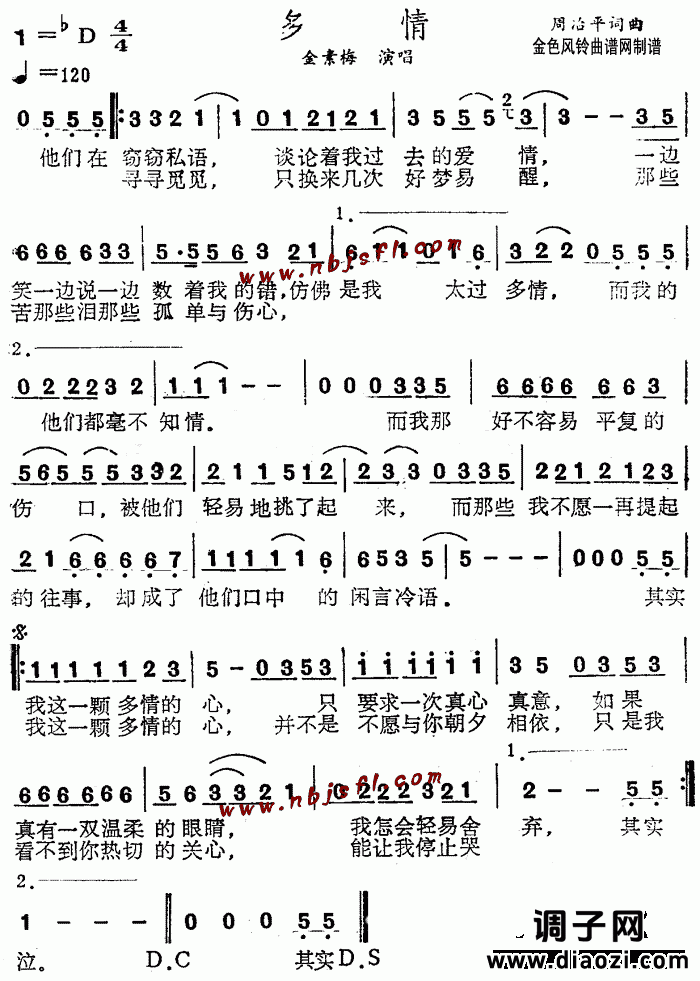 多情
1=♭D 4/4
周治平词曲
金素梅 演唱
金色风铃曲谱网制谱
♩=120
0 5 5 5 ‖: 3 3 2 1 | 1 0 1 2 1 2 1 | 3 5 5 5 2 3 | 3 - - 3 5 |
他们在 窃窃私语， 谈论着我过 去的爱 情， 一边
寻寻觅觅， 只换来几次 好梦易 醒， 那些
1.
6 6 6 6 3 3 | 5 · 5 5 6 3 2 1 | 6 1 1 0 1 6 | 3 2 2 0 5 5 5 |
www.nbjsfl.com
笑一边说一边 数 着我的错，仿佛 是我 太过 多情， 而我的
苦那些泪那些 孤 单与伤心，
2.
0 2 2 2 3 2 | 1 1 1 - - | 0 0 0 3 3 5 | 6 6 6 6 6 6 3 |
他们都毫不 知情。 而我那 好不容易 平复的
5 6 5 5 5 3 3 2 | 2 1 1 5 1 2 | 2 3 3 0 3 3 5 | 2 2 1 2 1 2 3 |
伤 口，被他们 轻易地挑了起 来， 而那些 我不愿一再提起
2 1 6 6 6 6 7 | 1 1 1 1 1 1 6 | 6 5 3 5 5 | 5 - - - | 0 0 0 5 5 |
的 往事， 却成了 他们口中 的 闲言冷语。 其实
‖: 1 1 1 1 1 1 2 3 | 5 - 0 3 5 3 | i i i i i i | 3 5 0 3 5 3 |
我这一颗 多情的 心， 只 要求一次真心 真意， 如果
我这一颗 多情的 心， 并不是 不愿与你朝夕 相依， 只是我
1.
6 6 6 6 6 6 6 | 5 6 3 3 2 1 | 0 2 2 2 3 2 1 | 2 - - 5 5 :‖
www.nbjsfl.com
真有一双温柔 的眼睛， 我怎会轻易舍 弃， 其实
看不到你热切 的关心， 能让我停止哭
2.
1 - - - ‖ 0 0 0 5 5 ‖
泣。 D.C 其实 D.S
调子网
www.diaozi.com